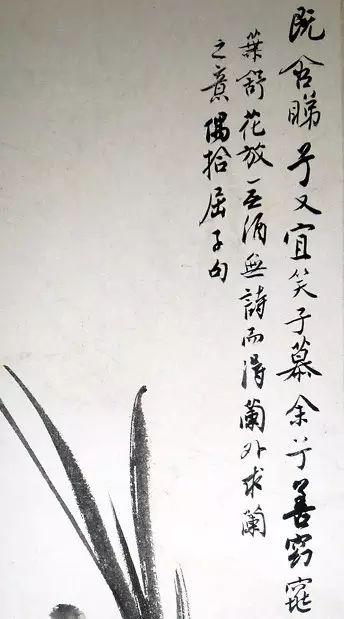 既含睇兮又宜笑子慕余兮善窈窕
葉舒花放一壺酒無詩而得蘭外求蘭
之意偶拾屈子句